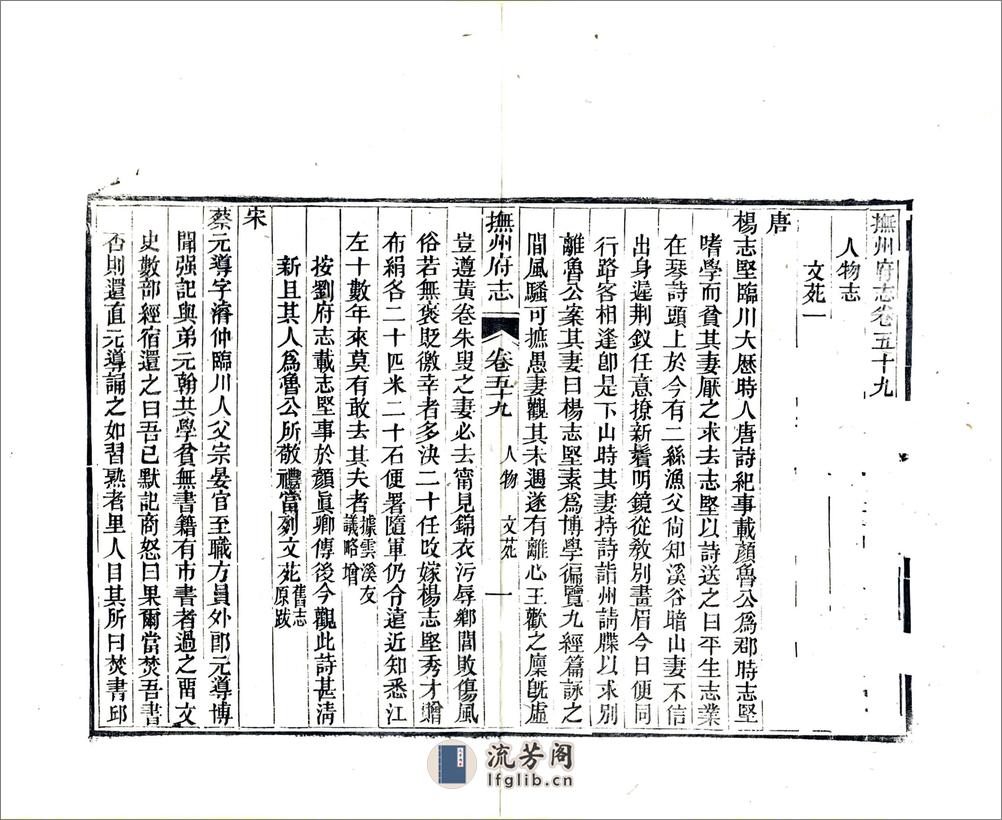 撫州府志卷五十九
人物志
文苑一
唐
楊志堅臨川大歷時人唐詩紀事載顏魯公爲郡時志堅
嗜學而貧其妻厭之求去志堅以詩送之曰平生志業
在琴詩頭上於今有二絲漁父尙知溪谷暗山妻不信
出身遲荆釵任意撩新鬢明鏡從敎別畫眉今日便同
行路客相逢卽是下山時其妻持詩詣州請牒以求別
離魯公案其妻曰楊志堅素爲博學徧覽九經篇詠之
間風騷可摭愚妻觀其未遇遂有離心王歡之廩旣虛
撫州府志 卷五十九 人物 文苑 一
豈遵黃卷朱叟之妻必去甯見錦衣污辱鄉閭敗傷風
俗若無褒貶徼幸者多決二十任改嫁楊志堅秀才贈
布絹各二十匹米二十石便署隨軍仍令遠近知悉江
左十數年來莫有敢去其夫者據雲溪友議略增
按劉府志載志堅事於顏眞卿傳後今觀此詩甚淸
新且其人爲魯公所敬禮當列文苑舊志原跋
宋
蔡元導字濟仲臨川人父宗晏官至職方員外郎元導博
聞强記與弟元翰共學貧無書籍有市書者過之畱文
史數部經宿還之曰吾已默記商怒曰果爾當焚吾書
否則還直元導誦之如習熟者里人目其所曰焚書邱
流芳阁
lfglib.cn